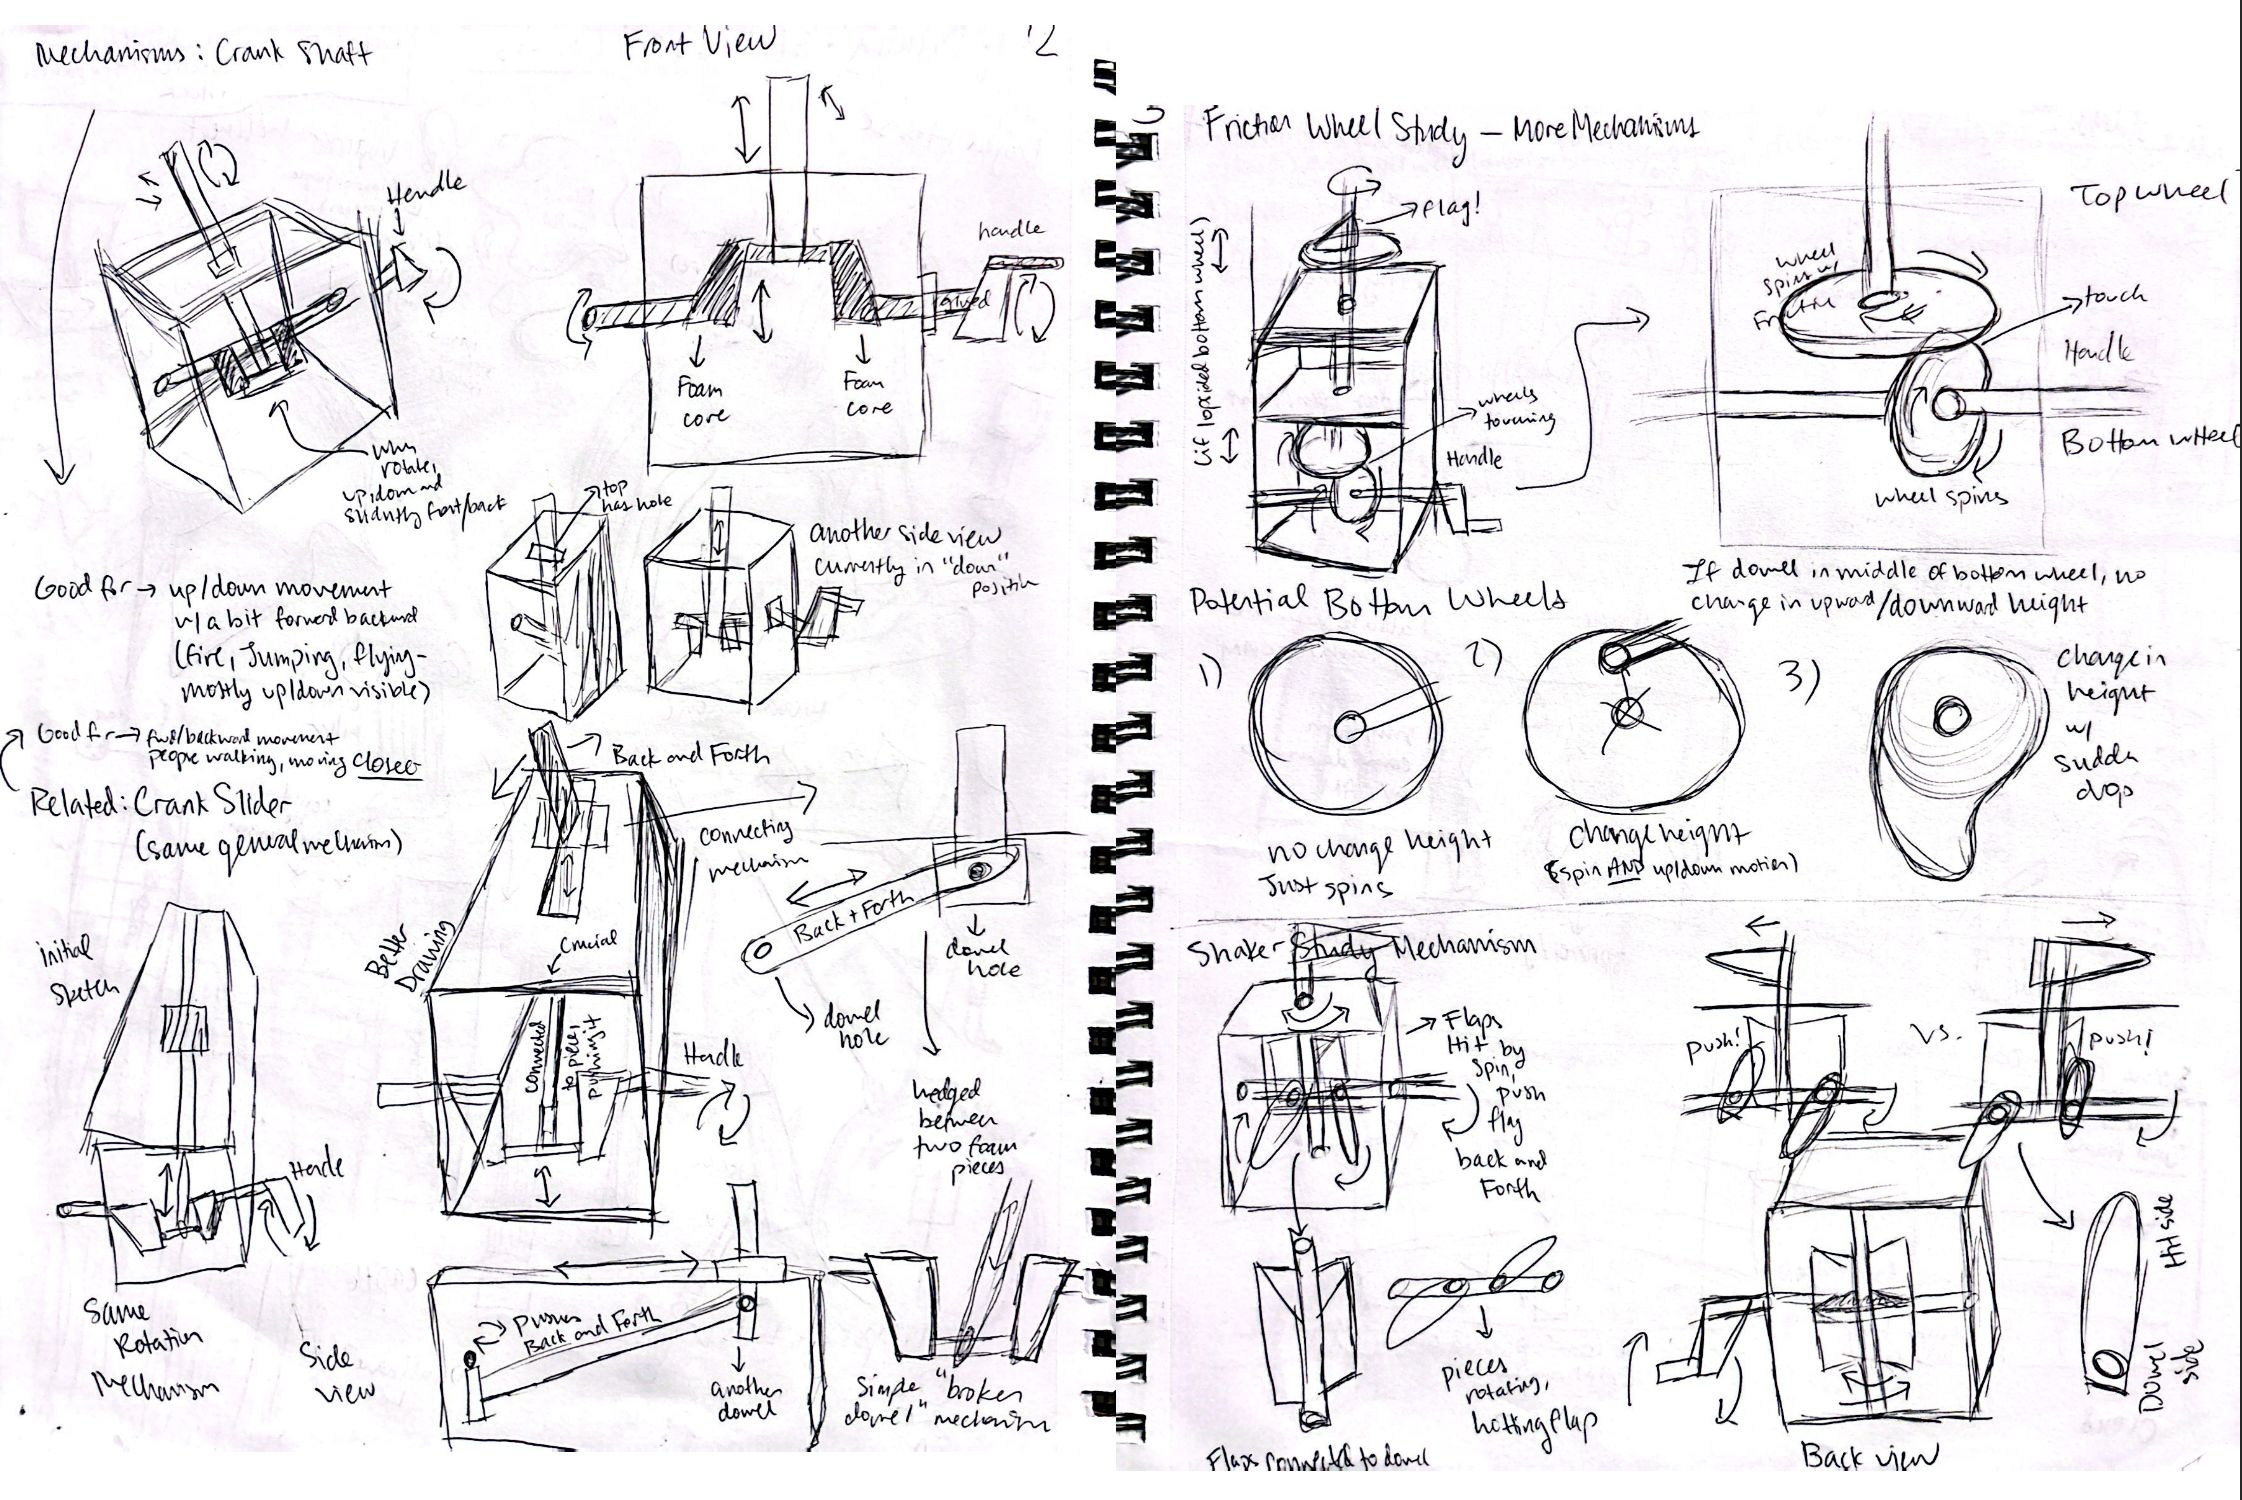 Mechanisms: Crank Shaft
Front View
2
Handle
when
rotate,
up/down and
slightly front/back
handle
glued
Foam
core
Foam
core
top
has hole
another side view
currently in "down"
position
Good for → up/down movement
w/ a bit forward backward
(fire, Jumping, flying-
mostly up/down visible)
Good for → fwd/backward movement
people walking, moving closer
Related: Crank Slider
(same general mechanism)
Back and Forth
connecting
mechanism
Back + Forth
dowel
hole
dowel
hole
wedged
between
two foam
pieces
initial
sketch
Handle
Same
Rotation
Mechanism
Better
Drawing
Crucial
connected
to piece,
pushing it
Handle
Side
view
pushes
Back and Forth
another
dowel
Simple, "broken
dowel" mechanism
Friction Wheel Study — More Mechanisms
flag!
(if lopsided bottom wheel)
wheels
touching
Handle
Top wheel
wheel
spins w/
Friction
touch
Handle
Bottom wheel
wheel spins
If dowel in middle of bottom wheel, no
change in upward/downward height
Potential Bottom Wheels
1)
2)
3)
no change height
Just spins
change height
(spin AND up/down motion)
change in
height
w/
sudden
drop
Shaker Study Mechanism
→ Flaps
Hit by
spin,
push
flag
back and
Forth
push!
vs.
push!
pieces
rotating,
hitting flap
Flaps connected to dowel
Back view
Hit side
Dowel
side